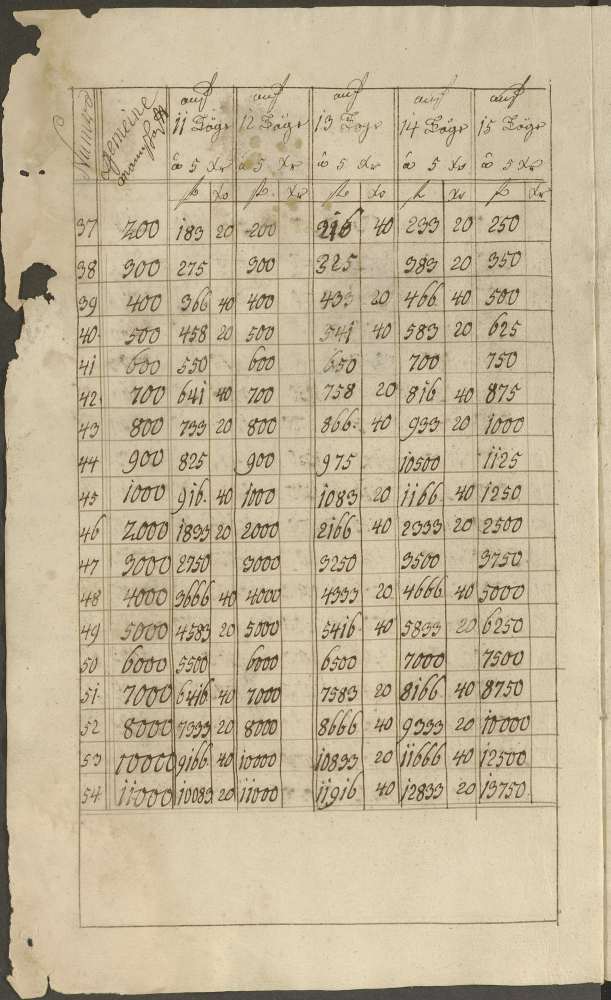 Numero gemeine auf auf auf auf auf
11 Täge 12 Täge 13 Täge 14 Täge 15 Täge
à 5 Xr à 5 Xr à 5 Xr à 5 Xr à 5 Xr
fl Xr fl Xr fl Xr fl Xr fl Xr
37 200 183 20 200 216 40 233 20 250
38 300 275 300 325 383 20 350
39 400 366 40 400 433 20 466 40 500
40 500 458 20 500 541 40 583 20 625
41 600 550 600 650 700 750
42 700 641 40 700 758 20 816 40 875
43 800 733 20 800 866 40 933 20 1000
44 900 825 900 975 10500 1125
45 1000 916 40 1000 1083 20 1166 40 1250
46 2000 1833 20 2000 2166 40 2333 20 2500
47 3000 2750 3000 3250 3500 3750
48 4000 3666 40 4000 4333 20 4666 40 5000
49 5000 4583 20 5000 5416 40 5833 20 6250
50 6000 5500 6000 6500 7000 7500
51 7000 6416 40 7000 7583 20 8166 40 8750
52 8000 7333 20 8000 8666 40 9333 20 10000
53 10000 9166 40 10000 10833 20 11666 40 12500
54 11000 10083 20 11000 11916 40 12833 20 13750